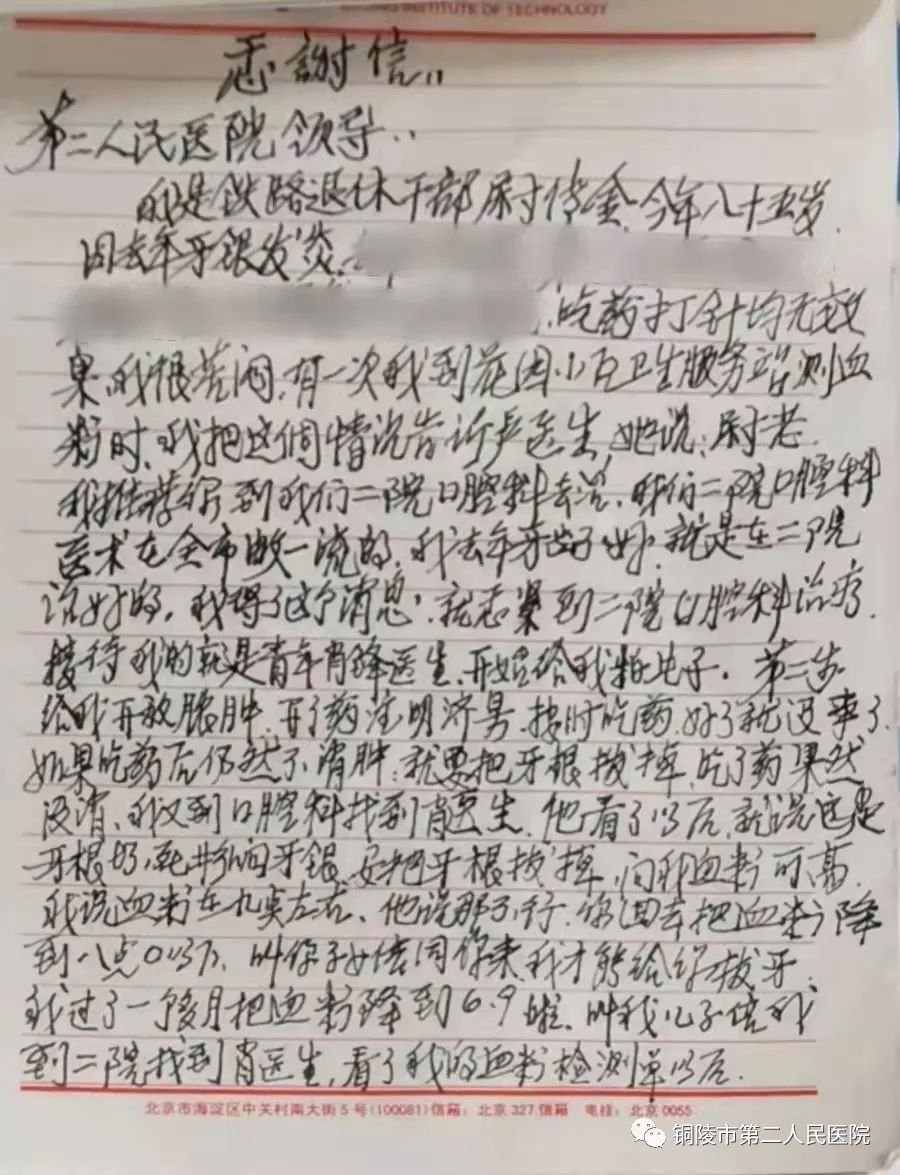 INSTITUTE OF TECHNOLOGY
感謝信..
第二人民医院领导..
我是铁路退休干部尉传金.今年八十五岁.
因去年牙银发炎.
吃药打针均无效
果.我很苦闷.有一次我到花园小区卫生服务站测血
粉时.我把这个情况告诉严医生.她说:尉老.
我推荐你到我们二院口腔科去治.我们二院口腔科
医术在全市数一流的.我去年牙齿就是在二院
治好的.我得了这个消息.就志到二院口腔科治疗.
接待我的就是青年肖锋医生.开始给我拍片子.第二步
给我开放脓肿.开了药注明济另.按时吃药.好了就没事了.
如果吃药后仍然不消肿.就要把牙根拔掉.吃了药果然
没消.我又到口腔科找到肖医生.他看了以后.就说这是
牙根牙银.要把牙根拔掉.问我血粉可高.
我说血粉在九点左右.他说那不行.你回去把血粉降
到八点0以下.叫你子女陪同你来.我才能给你拔牙.
我过了一个多月把血粉降到6.9啦.叫我儿子陪我
到二院找到肖医生,看了我的血粉检测单以后.
北京市海淀区中关村南大街5号(100081)信箱:北京327信箱 电挂:北京0055
铜陵市第二人民医院